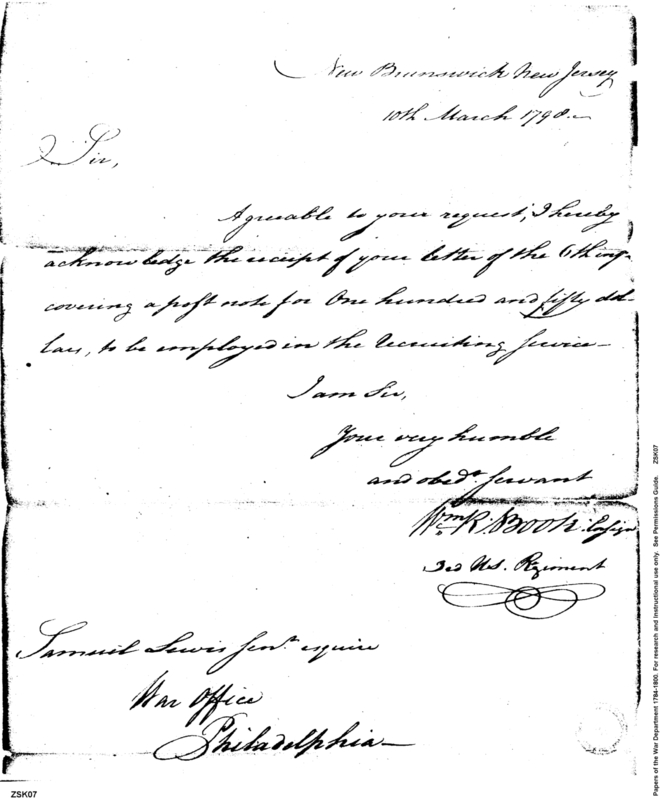 New Brunswick New Jersey
10th March 1798.
Sir,
Agreable to your request, I hereby
acknowledge the receipt of your letter of the 6th ins.
covering a post note for One hundred and fifty dol-
lars, to be employed in the recruiting service—
I am Sir,
Your very humble
and obedt. servant
Wm. R. Boote Ensign
3ed U.S. Regiment
Samuel Lewis Senr. esquire
War Office
Philadelphia—
ZSK07
Papers of the War Department 1784-1800. For research and instructional use only. See Permissions Guide. ZSK07